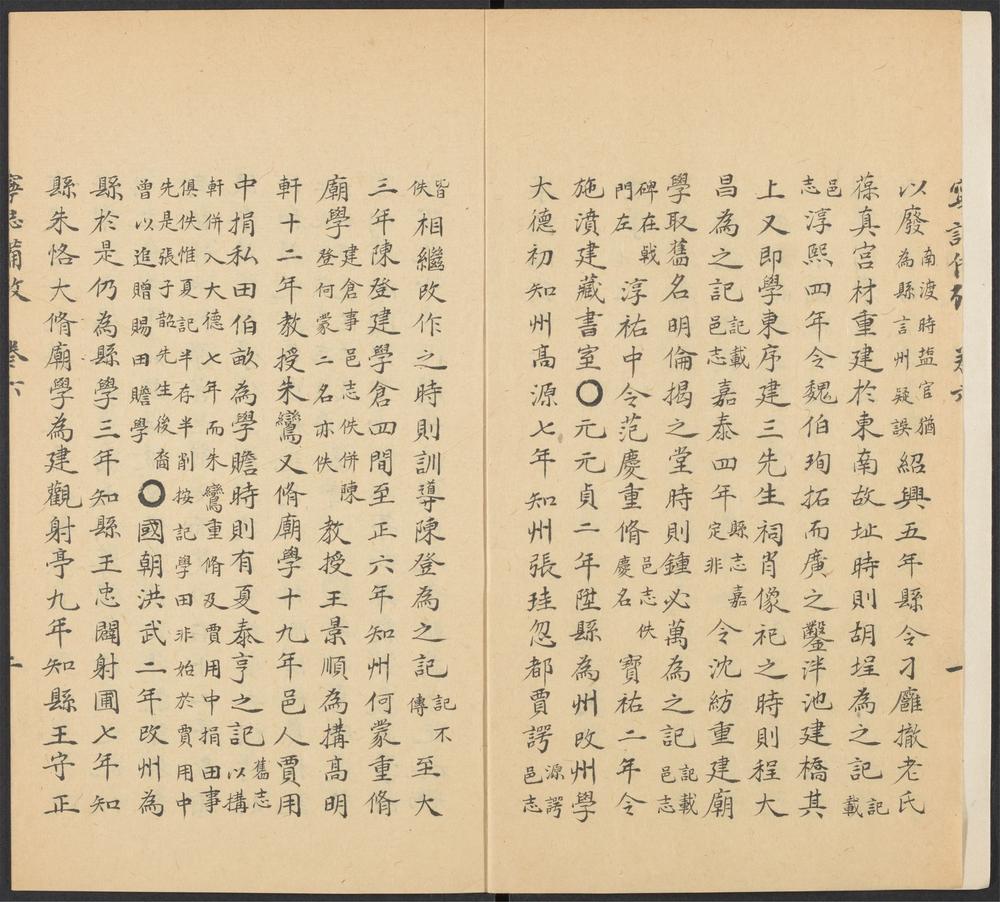 以廢南渡時盐官猶為縣言州疑誤紹興五年縣令刁廱撤老氏
葆真宮材重建於東南故址時則胡珵為之記記載
邑志淳熙四年令魏伯珣拓而廣之鑿泮池建橋其
上又即學東序建三先生祠肖像祀之時則程大
昌為之記記載邑志嘉泰四年縣志嘉定非令沈紡重建廟
學取舊名明倫揭之堂時則鍾必萬為之記記載邑志
碑在戟門左淳祐中令范慶重脩邑志佚慶名寶祐二年令
施濆建藏書室〇元元貞二年陞縣為州改州學
大德初知州高源七年知州張珪忽都賈諤源諤邑志
皆佚相繼改作之時則訓導陳登為之記記不傳至大
三年陳登建學倉四間至正六年知州何蒙重脩
廟學建倉事邑志佚併陳登何蒙二名亦佚教授王景順為搆高明
軒十二年教授朱鸑又脩廟學十九年邑人賈用
中捐私田伯畝為學贍時則有夏泰亨之記舊志以搆
軒併入大德七年而朱鸑重脩及賈用中捐田事俱佚惟夏記半存半削按記學田非始於賈用中
先是張子韶先生後裔曾以追贈賜田贍學〇國朝洪武二年改州為
縣於是仍為縣學三年知縣王忠闢射圃七年知
縣朱恪大脩廟學為建觀射亭九年知縣王守正
寧志備攷 卷六 二